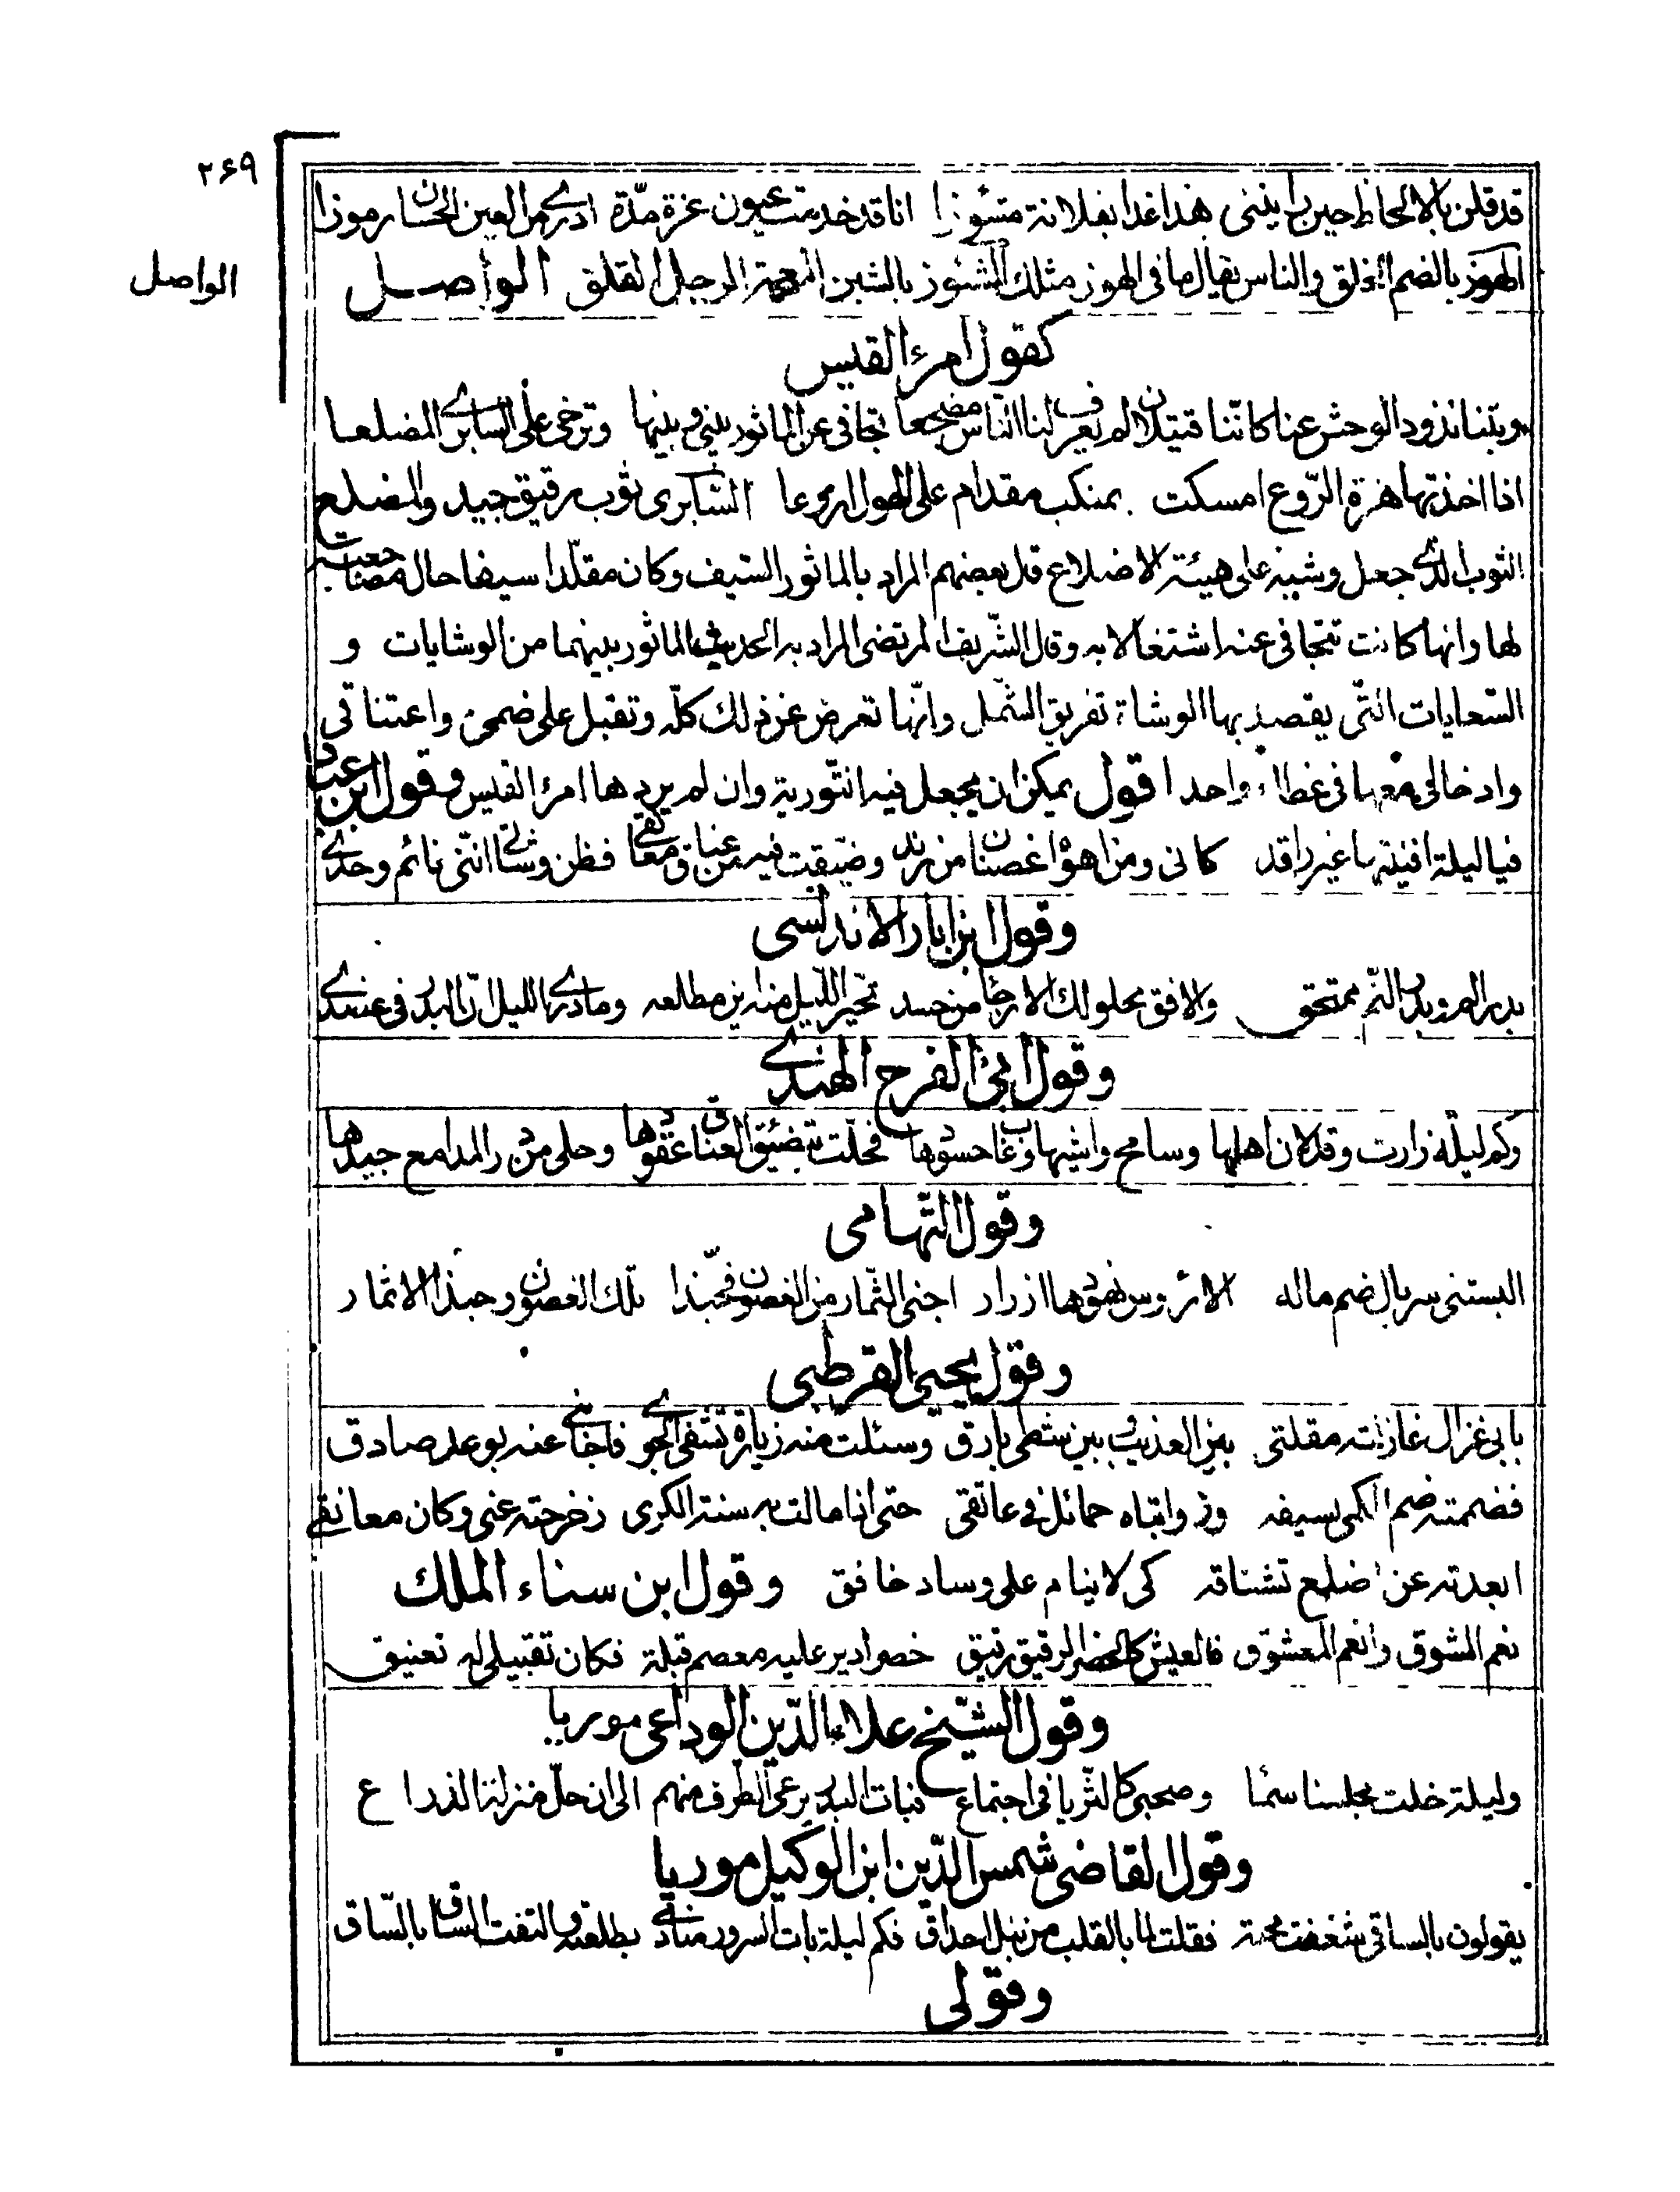 ٢۶٩
قد قلن بالالحاظ حين راينني هذا غدا بفلانة متشوزا انا قد خدمت عيون غزة مدّة ادري من العين الحسان رموزا
الهوز بالضم الخلق والناس يقال ما في الهوز مثلك المتشوز بالشين المعجمة الرجل القلق الواصل
الواصل
كقول امرئ القيس
وبتنا نذود الوحش عنا كانّنا قتيلان لم يعرف لنا النّاس مضجعا تجافى عن الماثور بيني وبينها وترخى على السابرى المضلعا
اذا اخذتها هزة الرّوع امسكت بمنكب مقدام على الهول اروعا السّابرى ثوب رقيق جيد والمضلع
الثوب الذي جعل وشيه على هيئة الاضلاع قال بعضهم المراد بالماثور السّيف وكان مقلّدا سيفا حال مضاجعته
لها وانها كانت تتجافى عنه اشتغالا به وقال الشّريف المرتضى المراد به الحديث الماثور بينهما من الوشايات و
السّعايات الّتى يقصد بها الوشاة تفريق الشّمل وانّها تعرض عن ذلك كلّه وتقبل على ضمى واعتناقى
وادخالى معها فى غطاء واحد اقول يمكن ان يجعل فيه التّورية وان لم يردها امرؤ القيس وقول ابن عباد
فيا ليلة افنيتها غير راقد كانى ومن اهوى غصنان من رند وضيقت فيه من عناق معانقى فظن وشاتى انّنى نائم وحدى
وقول ابن ابار الاندلسى
بدر الم وبدر التّم ممتحق والافق محلولك الارجاء من حسد تحيّر اللّيل منه اين مطلعه وما درى الليل انّ البدر فى عضدى
وقول ابى الفرج الهندى
وكم ليلة زارت وقد لان اهلها وسامح واشيها وغاب حسودها فحلّت بتضييق العناق عقودها وحلى من در المدامع جيدها
وقول التّهامى
البستنى سربال ضم ماله الا رؤس نهودها ازرار اجنى الثّمار من الغصون فحبّذا تلك الغصون وحبذا الاثمار
وقول يحيى القرطبى
بابى غزال غازلته مقلتى بين العذيب وبين شطى بارق وسئلت منه زيارة تشفى الجوى فاجابنى عنه بوعد صادق
فضممته ضم الكمى لسيفه وذوابتاه حمائل فى عاتقى حتى اذا مالت به سنة الكرى زحزحته عنى وكان معانقى
ابعدته عن اضلع تشتاقه كى لا ينام على وساد خافق وقول ابن سناء الملك
نعم المشوق وانعم المعشوق فالعيش كالخصر الرقيق رقيق خصر ادير عليه معصم قبلة فكان تقبيلى له تعنيق
وقول الشّيخ علاء الدّين الوداعى موريا
وليلة خلت مجلسنا سمائا وصحبى كالثّريا فى اجتماع فبات البدر يرعى الطرف منهم الى ان حلّ منزلة الذراع
وقول القاضى شمس الدّين ابن الوكيل موريا
يقولون بالساقى شغفت محبة فقلت لما بالقلب من نبل احداق فكم ليلة بات السرور منادمى بطلعته والتفت السّاق بالسّاق
وقولى